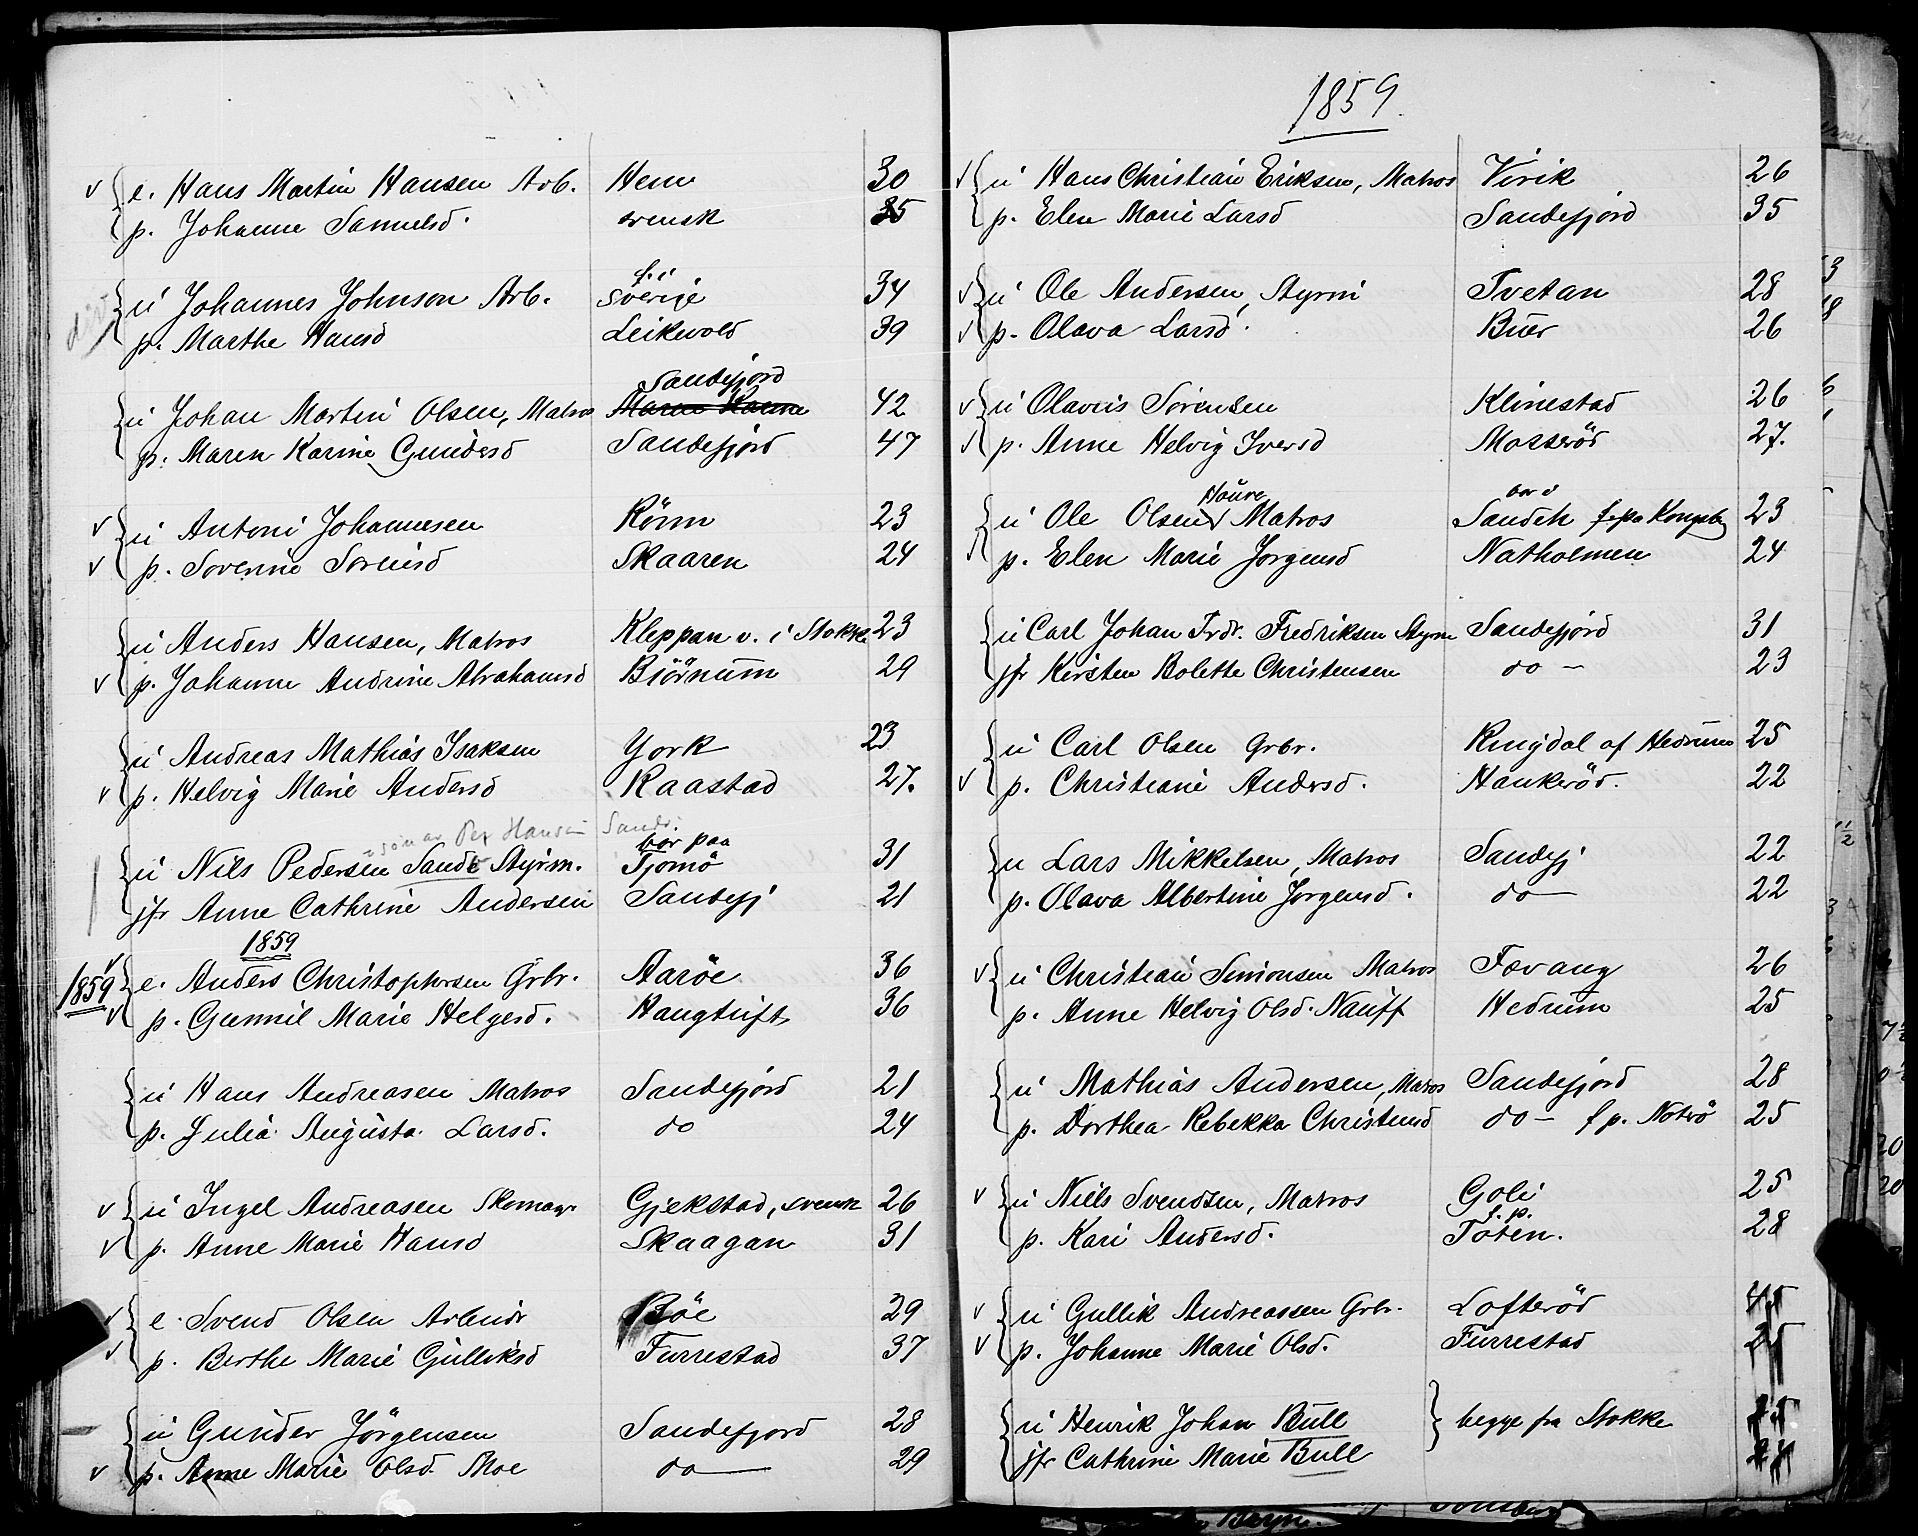 e. Hans Martin Hansen Arb. Hem 30
p. Johanne Samuelsd. svensk 35
u Johannes Johnson Arb. f. i Sverige 34
p. Marthe Hansd Leikvold 39
u Johan Martin Olsen, Matros Sandefjord 42
p. Maren Karine Gundersd Sandefjord 47
u Antoni Johannesen Rönn 23
p. Soverine Sorensd Skaaren 24
u Anders Hansen, Matros Kleppan v. i Stokke 23
p. Johanne Andrine Abrahamsd Biörnum 29
u Andreas Mathias Isaksen York 23
p. Helvig Marie Andersd Raastad 27.
søn av Per Hansen Sande.
u Nils Pedersen Sande Styrm. bor paa Tjomö 31
jfr Anne Cathrine Andersen Sandefj 21
1859
1859 e. Anders Christophersen Grbr. Aaröe 36
p. Gunnil Marie Helgesd. Haugtuft 36
u Hans Andreasen Matros Sandefjord 21
p. Julia Augusta Larsd. do 24
u Ingel Andreasen Skomagr Gjekstad, svensk 26
p. Anne Marie Hansd Skaagan 31
e. Svend Olsen Arbeidr Böe 29
p. Berthe Marie Gulliksd Furrestad 37
u Gunder Jörgensen Sandefjord 28
p. Anne Marie Olsd. Moe do 29
1859.
u Hans Christian Eriksen, Matros Virik 26
p. Elen Marie Larsd Sandefjord 35
u Ole Andersen, Styrm Tvetan 28
p. Olava Larsd. Buer 26
u Olavus Sörensen Klinestad 26
p. Anne Helvig Iversd Moseröd 27.
u Ole Olsen Houre Matros bor i Sandeh f. pa Kongsbg 23
p. Elen Marie Jorgensd Natholmen 24
u Carl Johan Frdr. Fredriksen Styrm Sandefjord 31
jfr Kirsten Bolette Christensen do - 23
u Carl Olsen Grbr. Ringdal af Hedrum 25
p. Christiane Andersd. Haukeröd. 22
u Lars Mikkelsen, Matros Sandefj 22
p. Olava Albertine Jorgensd. do 22
u Christian Simonsen Matros Fevang 26
p. Anne Helvig Olsd. Nauff Hedrum 25
u Mathias Andersen, Matros Sandefjord 28
p. Dorthea Rebekka Christensd do - f p. Noterö 25
u Niels Svendsen, Matros Goli 25
p. Kari Andersd. f. p. Toten. 28
u Gullik Andreassen Grbr. Lofteröd 45
p. Johanne Marie Olsd. Furrestad 25
u Henrik Johan Bull begge fra Stokke
jfr Cathrine Marie Bull